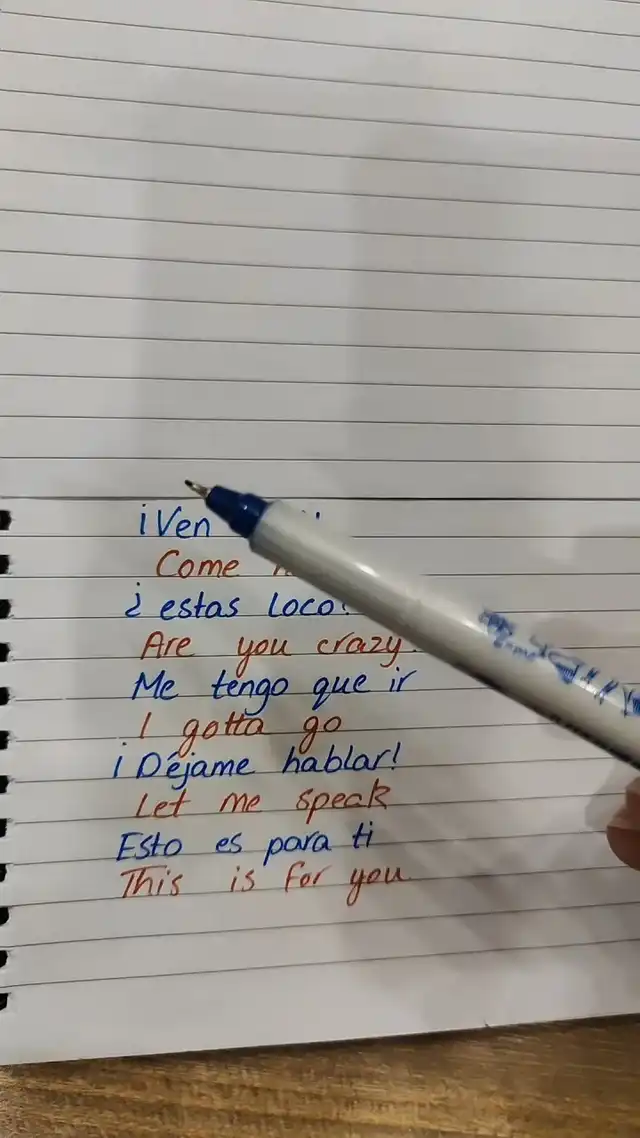 ¡Ven
Come
¿ estas loco?
Are you crazy
Me tengo que ir
I gotta go
¡ Déjame hablar!
Let me speak
Esto es para ti
This is for you